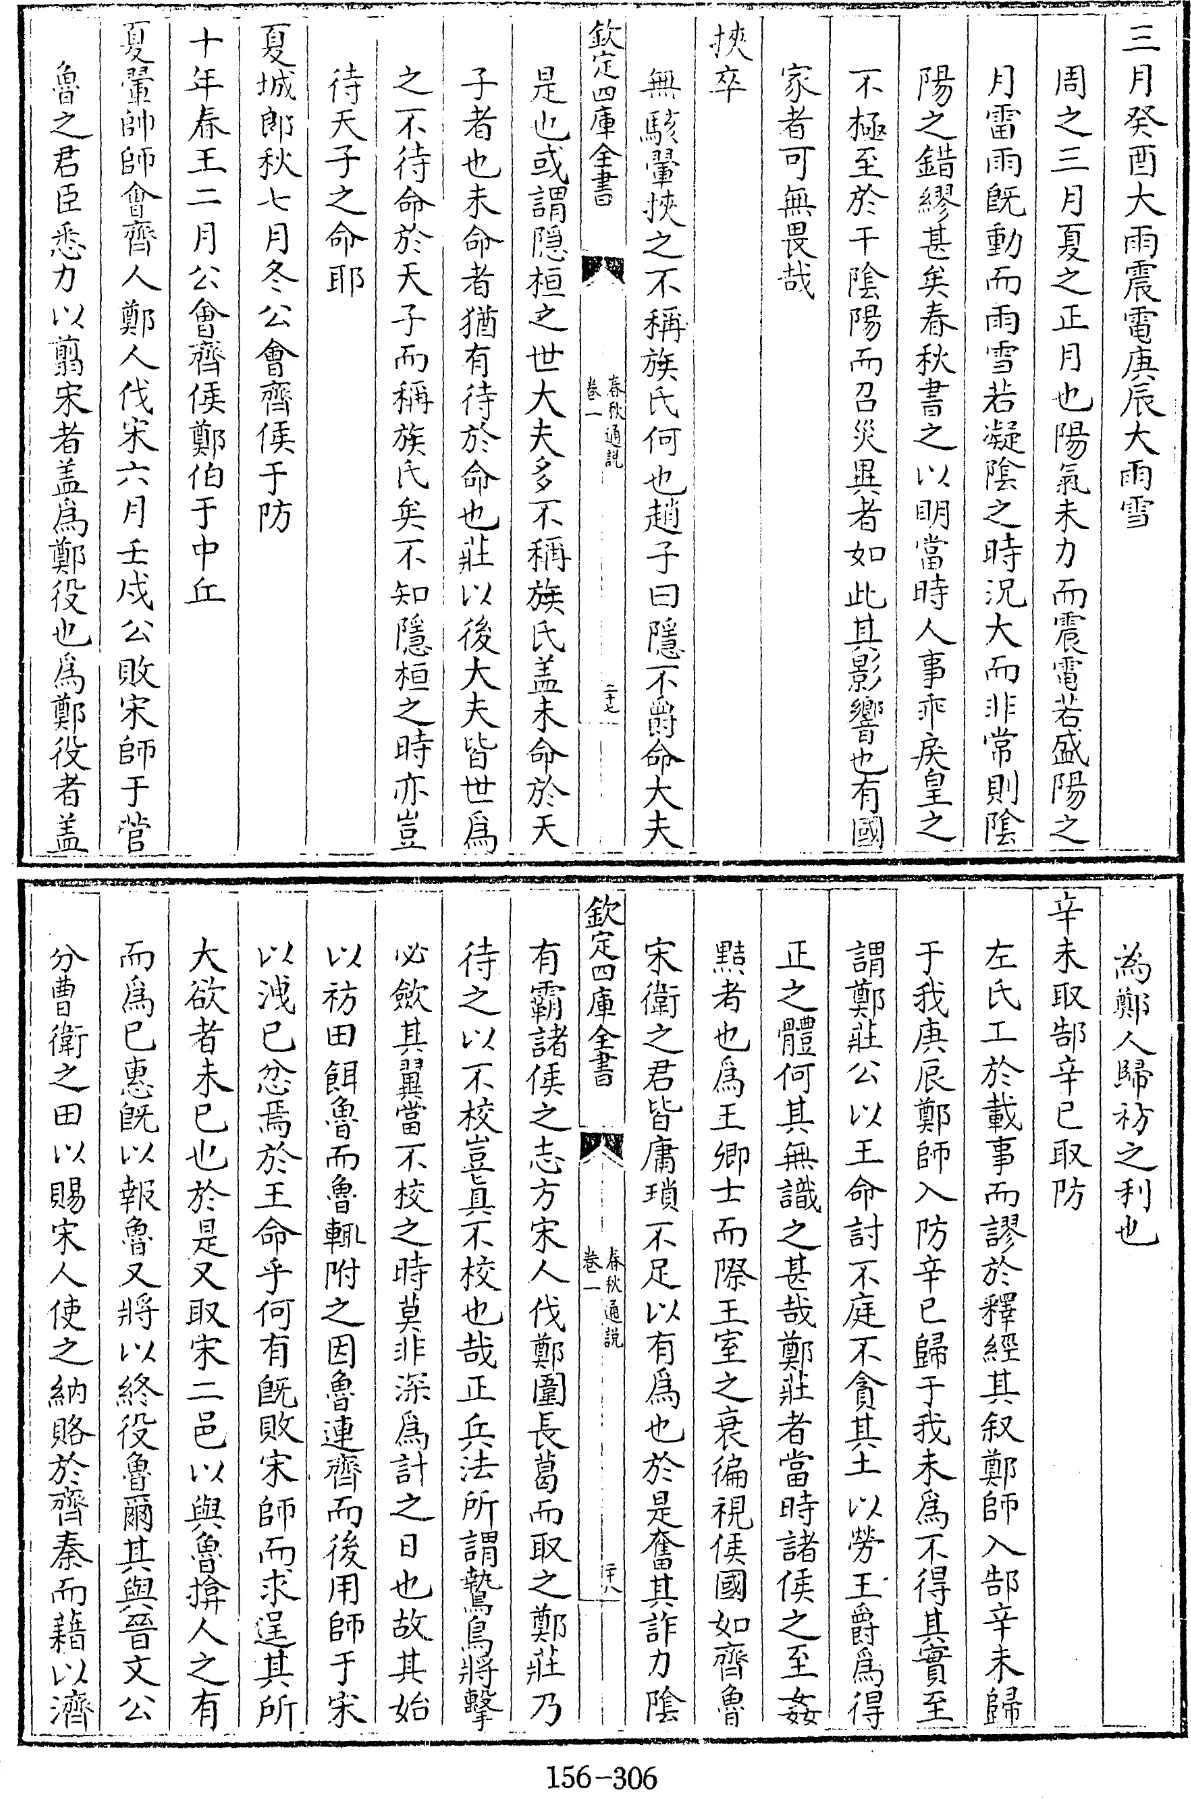 三月癸酉大雨震電庚辰大雨雪
周之三月夏之正月也陽氣未力而震電若盛陽之
月雷雨既動而雨雪若凝陰之時況大而非常則陰
陽之錯繆甚矣春秋書之以明當時人事乖戾皇之
不極至於干陰陽而召災異者如此其影響也有國
家者可無畏哉
挾卒
無駭翬挾之不稱族氏何也趙子曰隱不爵命大夫
欽定四庫全書
春秋通說
卷一
二十七
是也或謂隱桓之世大夫多不稱族氏盖未命於天
子者也未命者猶有待於命也莊以後大夫皆世爲
之不待命於天子而稱族氏矣不知隱桓之時亦豈
待天子之命耶
夏城郎秋七月冬公會齊侯于防
十年春王二月公會齊侯鄭伯于中丘
夏翬帥師會齊人鄭人伐宋六月壬戌公敗宋師于菅
魯之君臣悉力以翦宋者盖爲鄭役也爲鄭役者盖
為鄭人歸祊之利也
辛未取郜辛巳取防
左氏工於載事而謬於釋經其叙鄭師入郜辛未歸
于我庚辰鄭師入防辛巳歸于我未爲不得其實至
謂鄭莊公以王命討不庭不貪其土以勞王爵爲得
正之體何其無識之甚哉鄭莊者當時諸侯之至姦
黠者也爲王卿士而際王室之衰徧視侯國如齊魯
宋衛之君皆庸瑣不足以有爲也於是奮其詐力陰
欽定四庫全書
春秋通說
卷一
二十八
有霸諸侯之志方宋人伐鄭圍長葛而取之鄭莊乃
待之以不校豈真不校也哉正兵法所謂鷙鳥將擊
必歛其翼當不校之時莫非深爲計之日也故其始
以祊田餌魯而魯輒附之因魯連齊而後用師于宋
以洩已忿焉於王命乎何有既敗宋師而求逞其所
大欲者未已也於是又取宋二邑以與魯揜人之有
而爲已惠既以報魯又將以終役魯爾其與晉文公
分曹衛之田以賜宋人使之納賂於齊秦而藉以濟
156-306